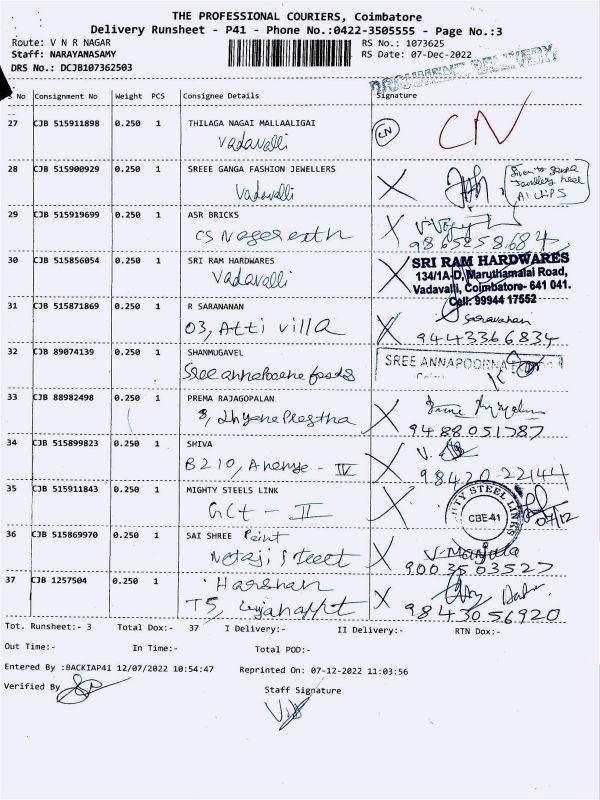 THE PROFESSIONAL COURIERS, Coimbatore
Delivery Runsheet - P41 - Phone No.:0422-3505555 - Page No.:3
Route: V N R NAGAR
RS No.: 1073625
Staff: NARAYANASAMY
RS Date: 07-Dec-2022
DRS No.: DCJB107362503
DOCUMENT DELIVERY
S No Consignment No Weight PCS Consignee Details Signature
27 CJB 515911898 0.250 1 THILAGA NAGAI MALLAALIGAI
Vadavalli
CN CN
28 CJB 515900929 0.250 1 SREEE GANGA FASHION JEWELLERS
Vadavalli
X
Given to
A1 CHIPS
29 CJB 515919699 0.250 1 ASR BRICKS
CS
X
30 CJB 515856054 0.250 1 SRI RAM HARDWARES
Vadavalli
X
SRI RAM HARDWARES
134/1A-D, Maruthamalai Road,
Vadavalli, Coimbatore- 641 041.
Cell: 99944 17552
31 CJB 515871869 0.250 1 R SARANANAN
03, Atti villa
X Saravanan
9443366834
32 CJB 89074139 0.250 1 SHANMUGAVEL
Sree annapoorna foods
SREE ANNAPOORNA
33 CJB 88982498 0.250 1 PREMA RAJAGOPALAN
X
9488051787
34 CJB 515899823 0.250 1 SHIVA
B210, Avenue - IV
X V.
98420 22144
35 CJB 515911843 0.250 1 MIGHTY STEELS LINK
GCT - II
X
MIGHTY STEEL LINKS
CBE-41
07/12
36 CJB 515869970 0.250 1 SAI SHREE Paint
Netaji street
X V. Manjula
9003503527
37 CJB 1257504 0.250 1 Harshan
T5,
X
98430 56920
Tot. Runsheet:- 3 Total Dox:- 37 I Delivery:- II Delivery:- RTN Dox:-
Out Time:- In Time:- Total POD:-
Entered By :BACKIAP41 12/07/2022 10:54:47 Reprinted On: 07-12-2022 11:03:56
Verified By
Staff Signature